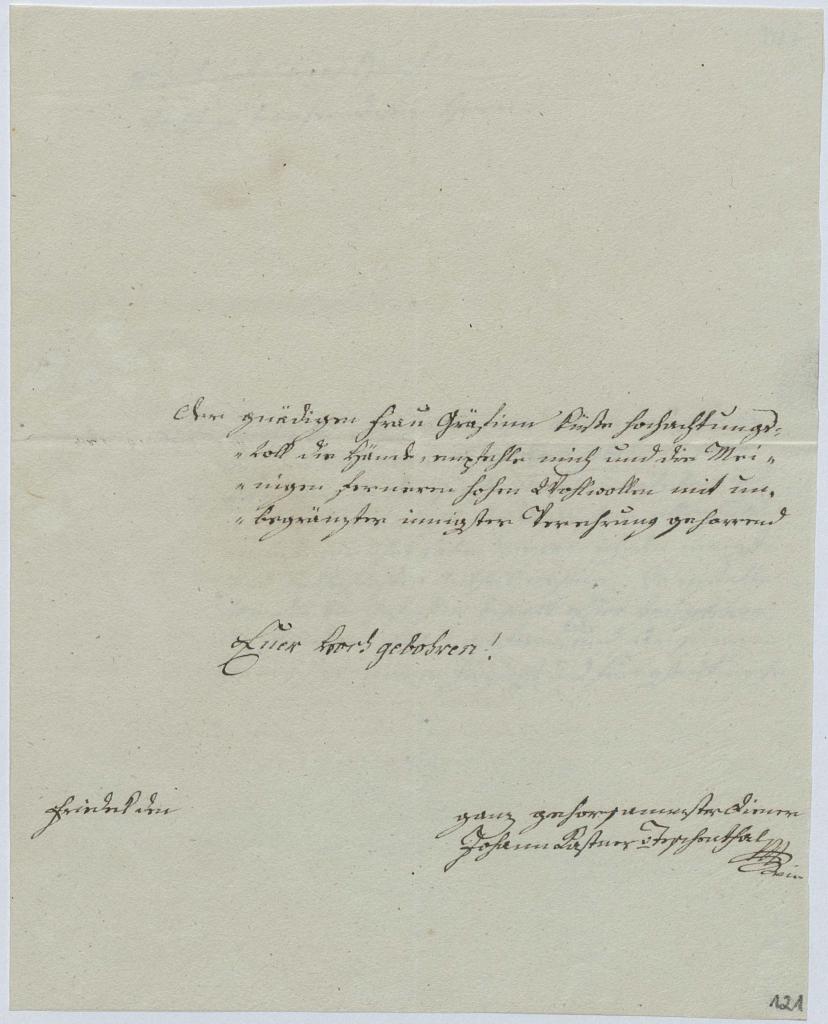 Der gnädigen Frau Gräfinn küße hochachtungs=
"voll die Hände, empfehle mich und die Mei"
"nigen ferneren hohen Wohlwollen mit un"
"begränzter innigster Verehrung geharrend
Euer Hochgebohren!
Friedek den
ganz gehorsamerster Diener
Johann Kastner v Teschenthal
121